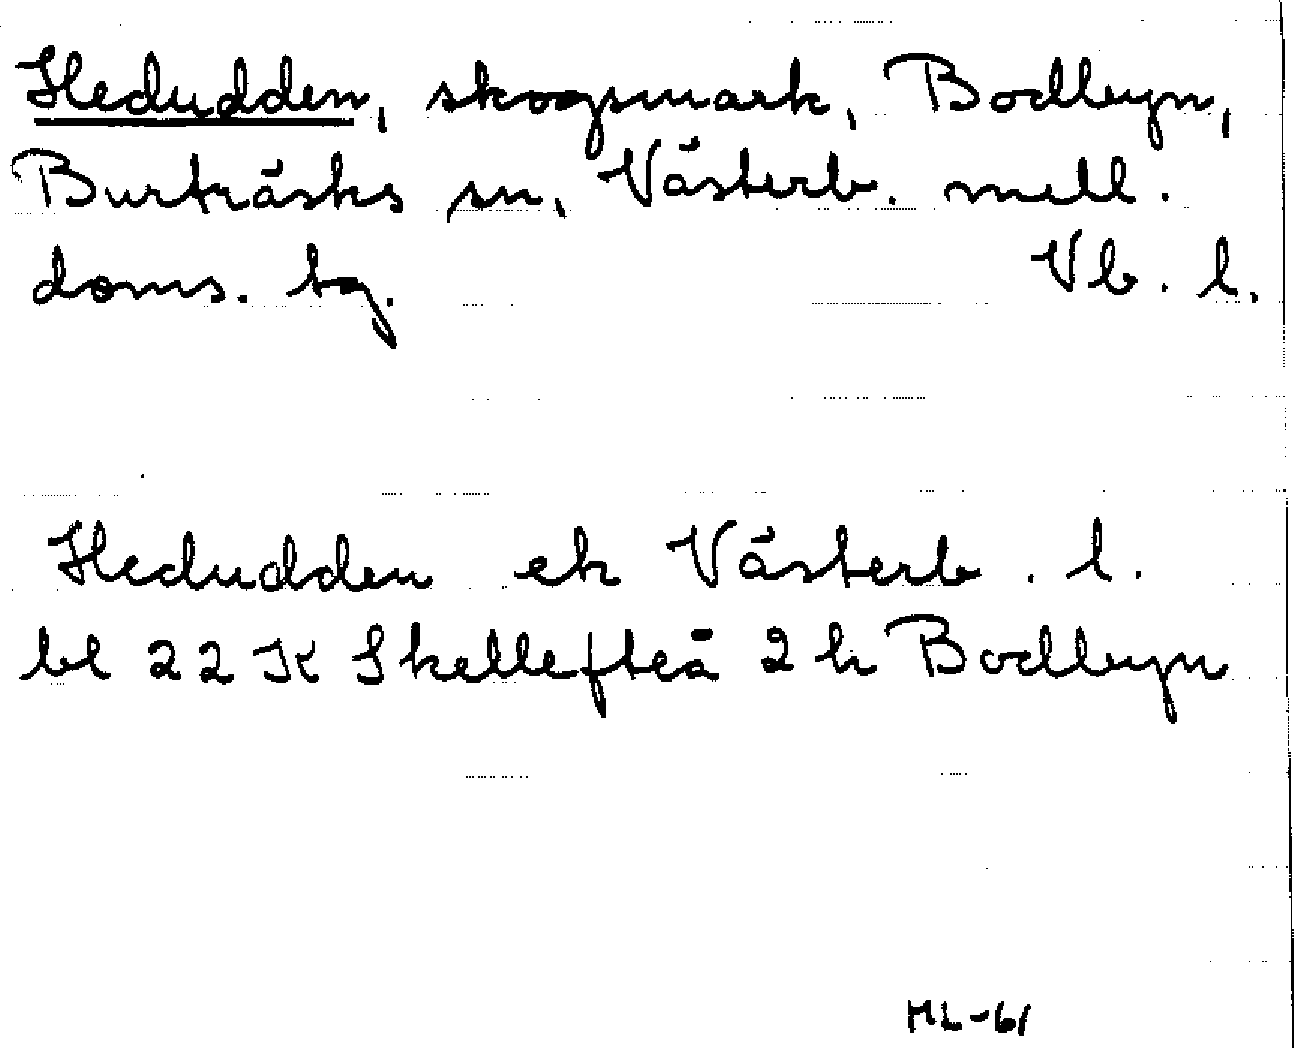 Hedudden, skogsmark, Bodbyn,
Burträsks sn, Västerb. mell.
doms. tg. Vb. l.
Hedudden ek Västerb. l.
bl 22 K Skellefteå 2 h Bodbyn
HL-61